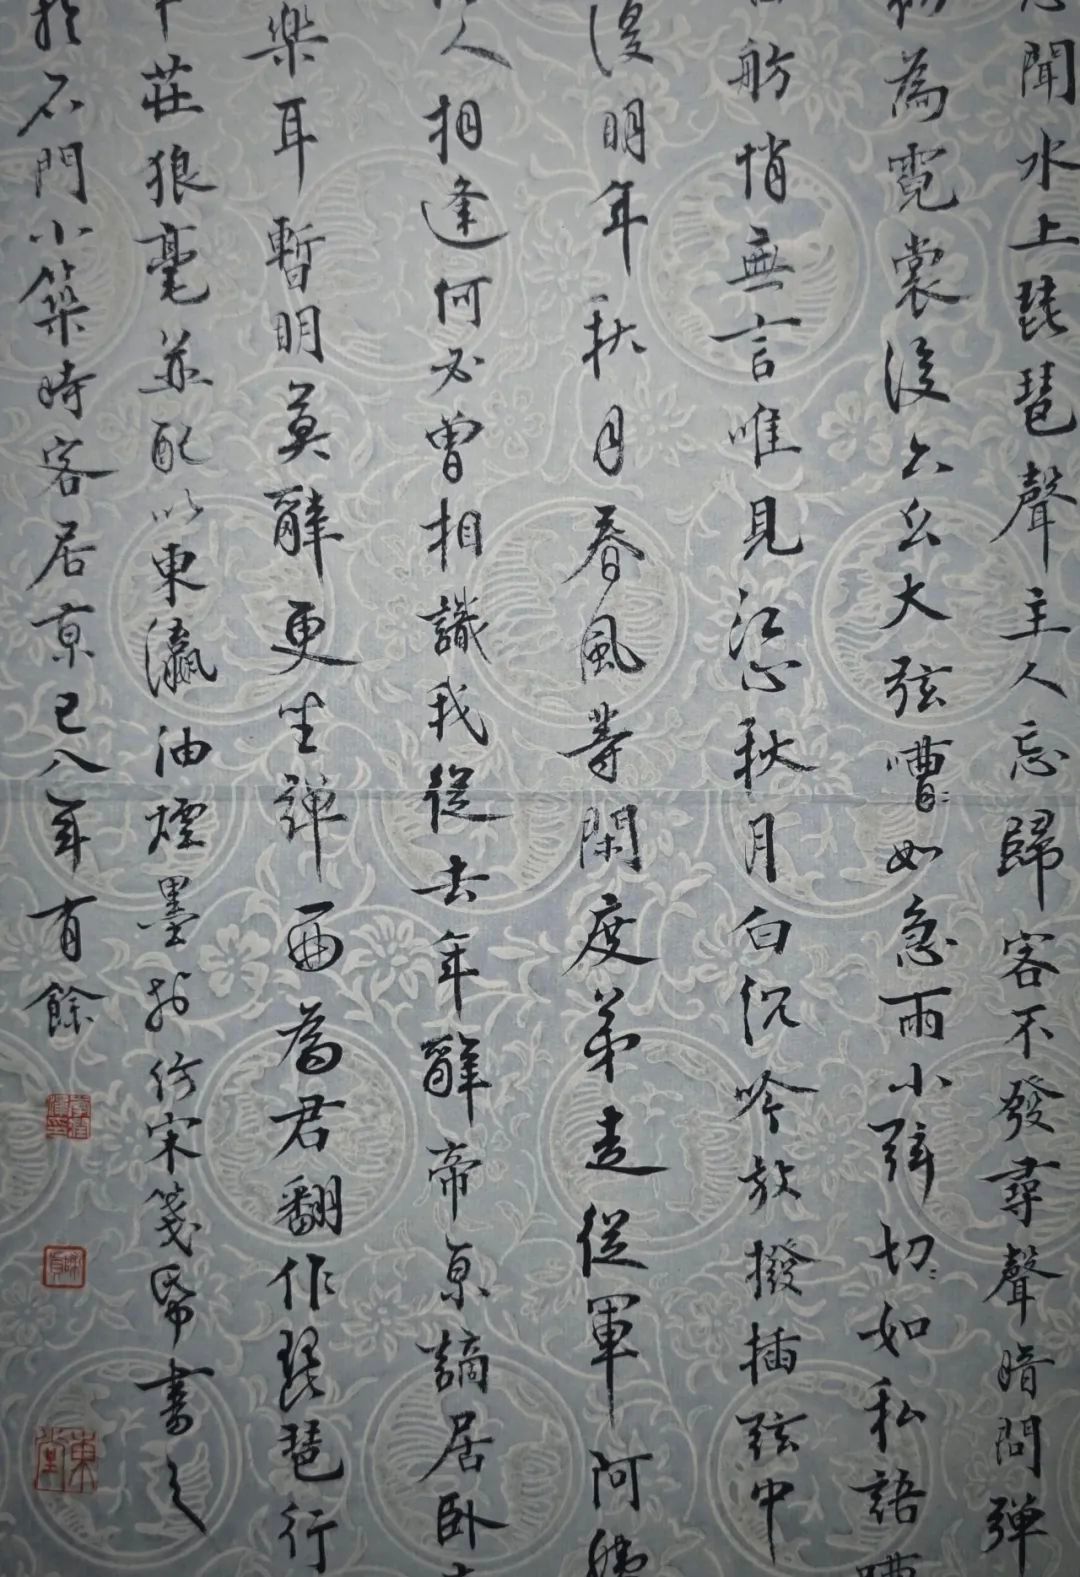 聞水上琵琶聲主人忘歸客不發尋聲暗問彈
為霓裳後六幺大弦嘈嘈如急雨小弦切切如私語
舫悄無言唯見江心秋月白沉吟放撥插弦中
復明年秋月春風等閑度弟走從軍阿姨
人相逢何必曾相識我從去年辭帝京謫居臥
樂耳暫明莫辭更坐彈一曲為君翻作琵琶行
莊狼毫並配以東瀛油煙墨於仿宋箋紙書之
於石門小築時客居京已八年有餘
東堂